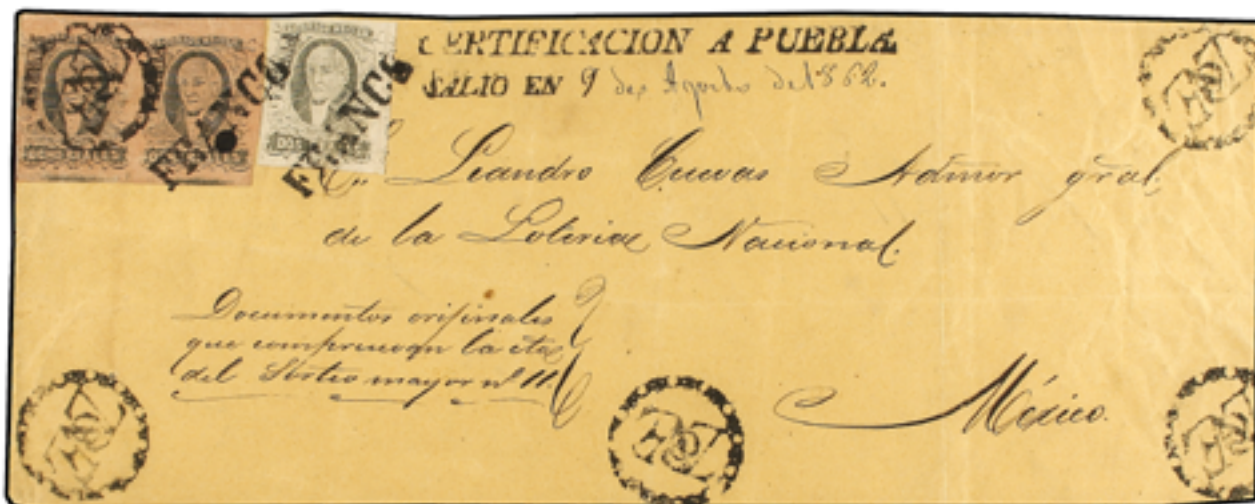 CERTIFICACION A PUEBLA
SALIO EN 9 de Agosto de 1862.
FRANCO
FRANCO
DOS REALES
C. Leandro Cuevas Admor gral,
de la Loteria Nacional.
Documentos orijinales
que comprueban la cta
del Sorteo mayor nº 11.
México.